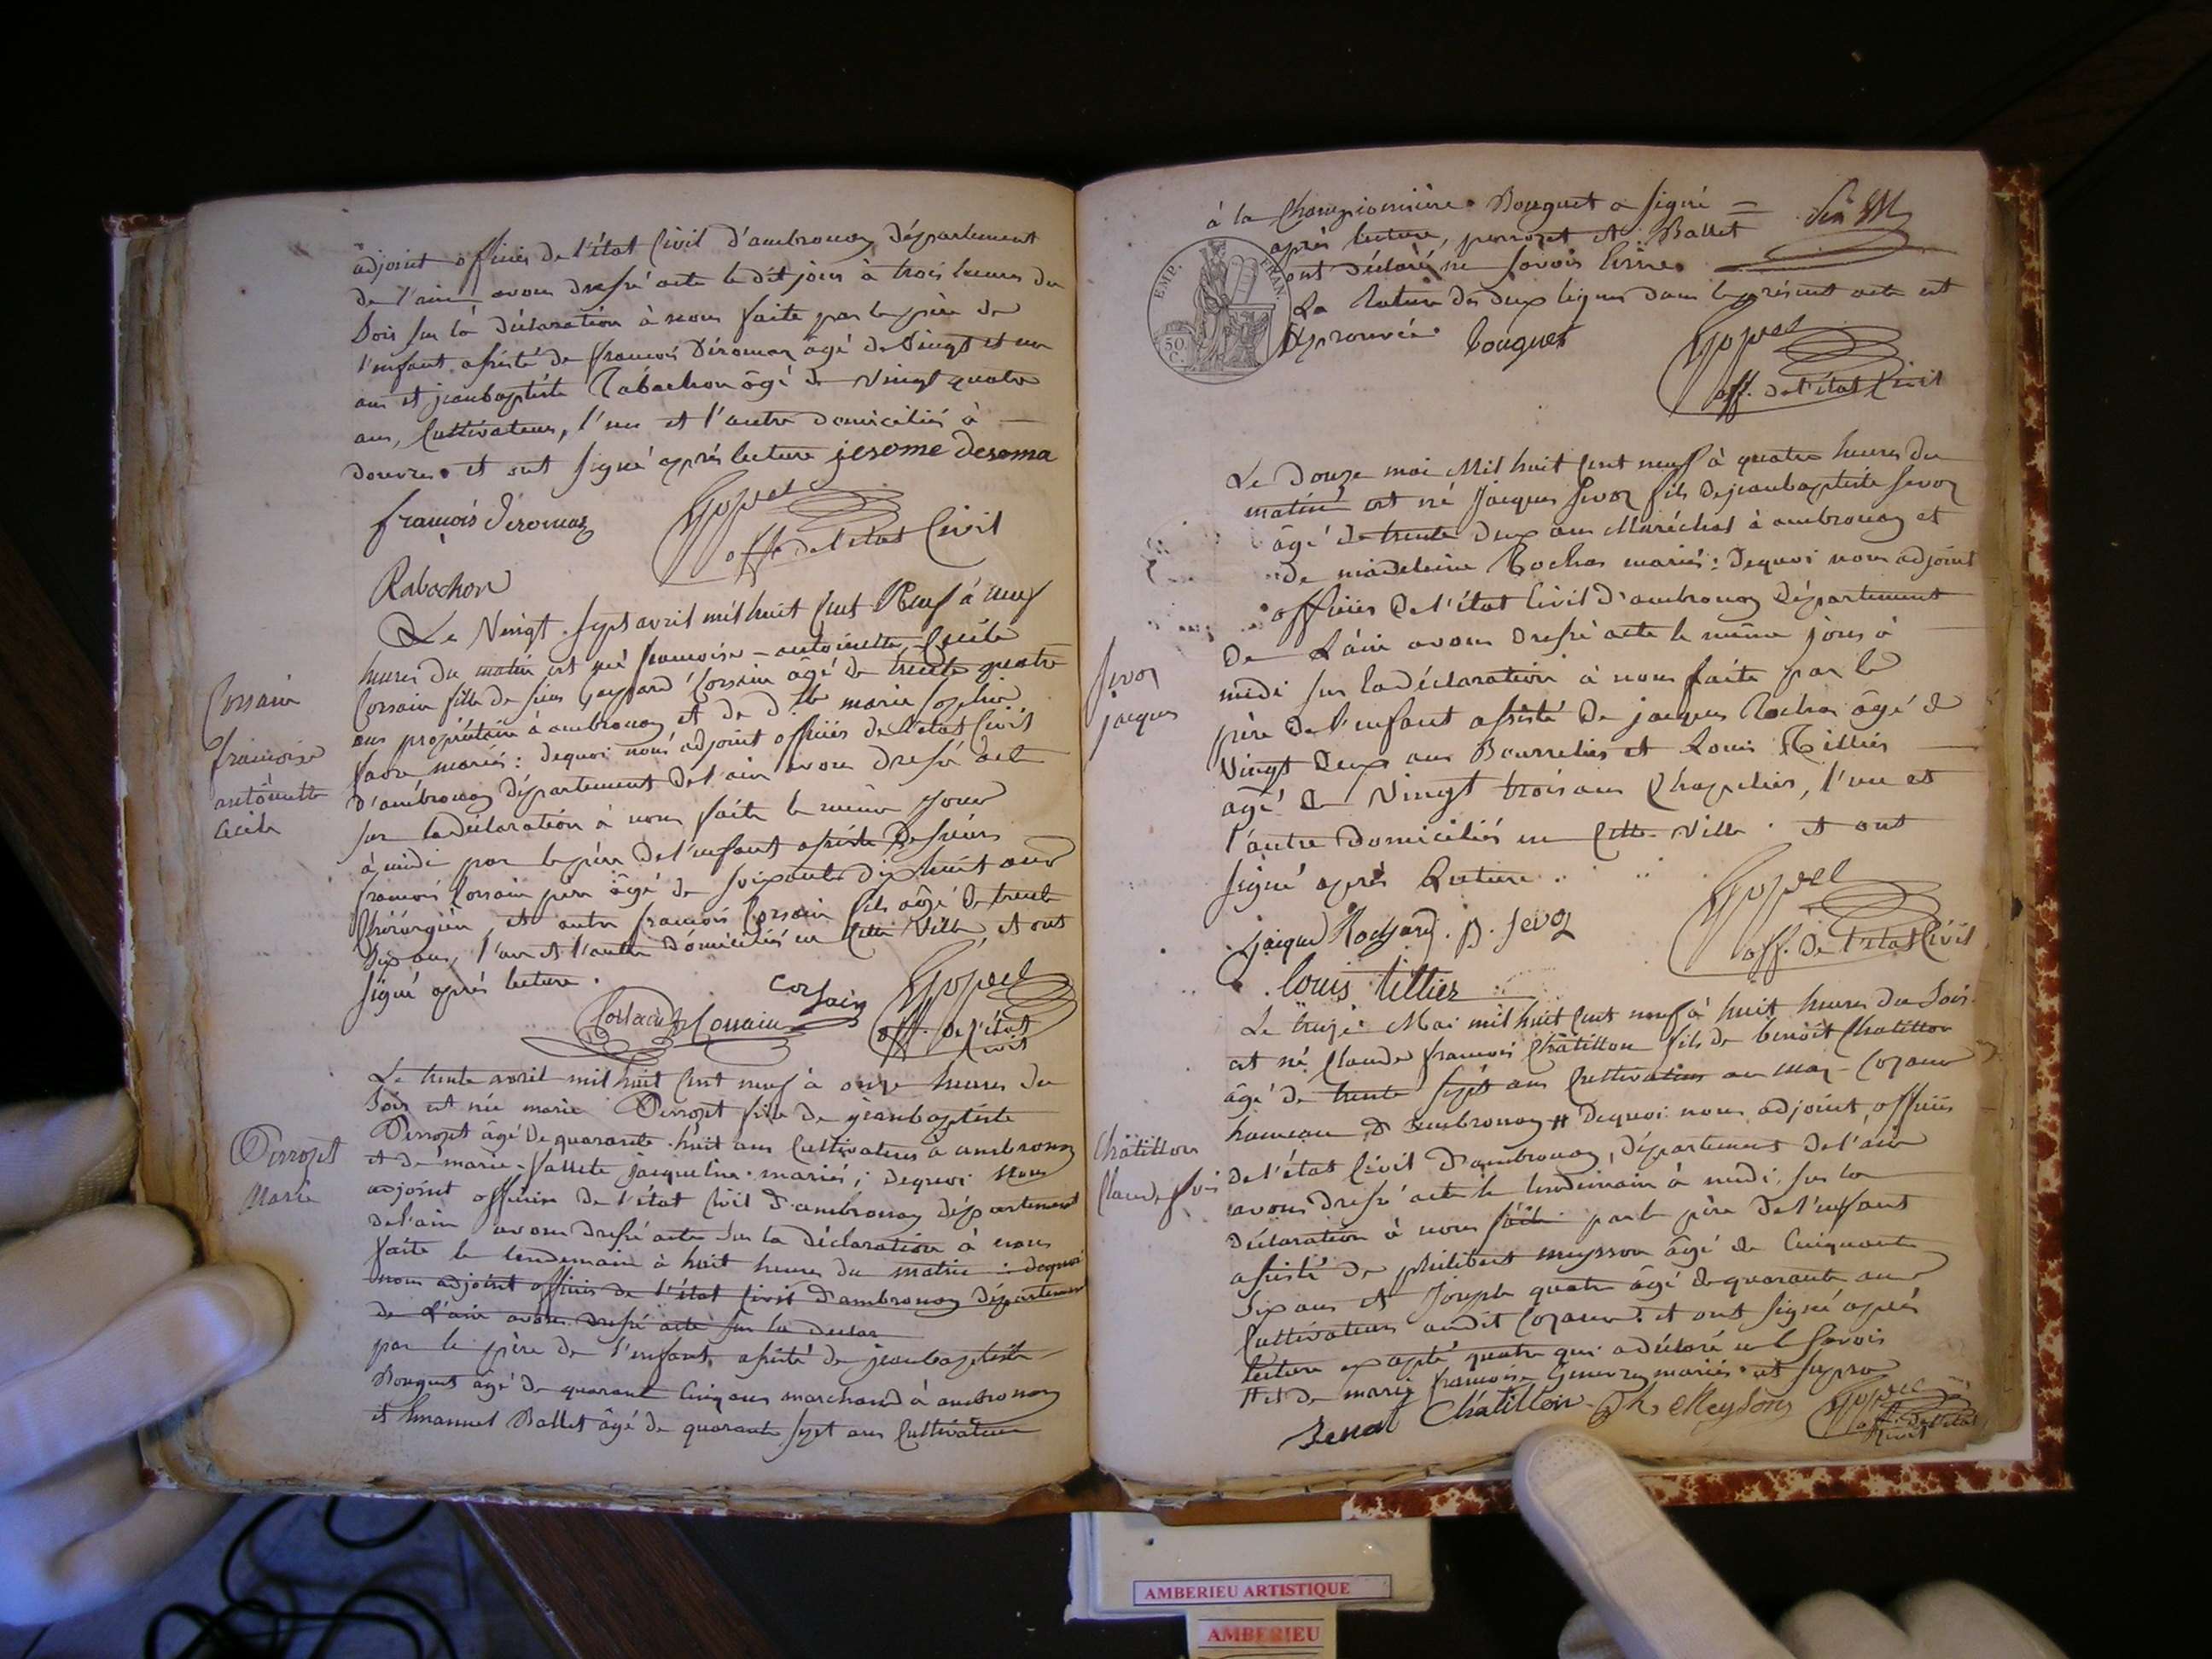 adjoint officier de l'état Civil d'ambronay, département
de l'ain, avons dressé acte le dit jour à trois heures du
Soir sur la déclaration à nous faite par le père de
l'enfant, assisté de françois Déromas âgé de Vingt et un
ans et jeanbaptiste Rabachon âgé de Vingt quatre
ans, Cultivateurs, l'un et l'autre domiciliés à
douvres. et ont signé après lecture jerome deroma
françois Déromas
off. de l'état Civil
Rabachon
Le Vingt. Sept avril mil huit Cent Neuf à neuf
heures du matin est née françoise-antoinette, Cécile
Corsain fille de sieur Gaspard Corsain âgé de trente quatre
ans propriétaire à ambronay et de d.lle marie Sophie
favre mariés: dequoi nous adjoint officier de l'état Civil
d'ambronay département de l'ain avons dressé acte
sur la déclaration à nous faite le même jour
à midi par le père de l'enfant assisté de sieurs
françois Corsain père âgé de soixante dix huit ans
Chirurgien, et autre françois Corsain fils âgé de trente
Six ans, l'un et l'autre domiciliés en Cette Ville, et ont
signé après lecture.
Corsain
françoise
antoinette
Cécile
Corsain
Corsain
off. de l'état
Civil
Le trente avril mil huit Cent neuf à onze heures du
Soir est née marie Perrozet fille de jeanbaptiste
Perrozet âgé de quarante. huit ans Cultivateur à ambronay
et de marie. jacqueline. mariés; dequoi Nous
adjoint officier de l'état Civil d'ambronay département
de l'ain avons dressé acte sur la déclaration à nous
faite le lendemain à huit heures du matin : dequoi
nous adjoint officier de l'état Civil d'ambronay département
de l'ain avons dressé acte sur la declar
par le père de l'enfant, assisté de jeanbaptiste
Bouguet âgé de quarante Cinq ans marchand à ambronay
et Emanuel Ballet âgé de quarante sept ans Cultivateur
Perrozet
Marie
à la Championnière. Bouguet a signé
après lecture, perrozet et Ballet
ont déclaré ne savoir écrire.
La rature de deux lignes dans le présent acte est
Approuvée. bouguet
EMP. FRAN.
50 C.
off. de l'état Civil
Le Douze mai Mil huit Cent neuf à quatre heures du
matin est né Jacques Sevoz fils de jeanbaptiste Sevoz
âgé de trente deux ans Maréchal à ambronay et
de madeleine Rochas mariés: dequoi nous adjoint
officier de l'état Civil d'ambronay Département
De L'ain avons dressé acte le même jour à
midi sur la déclaration à nous faite par le
père de l'enfant assisté de jacques Rochas âgé de
Vingt Deux ans Bourrelier et Louis Tillier
âgé de Vingt trois ans Chapelier, l'un et
l'autre domiciliés en Cette Ville. et ont
signé après lecture.
Sevoz
jacques
off. de l'état Civil
Louis tillier
Le treize Mai mil huit Cent neuf à huit heures du Soir
est né Claude françois Châtillon fils de benoît Chatillon
âgé de trente sept ans Cultivateur au
hameau d'ambronay # Dequoi nous adjoint, officier
de l'état Civil d'ambronay, département de l'ain
avons dressé acte le lendemain à midi. sur la
déclaration à nous faite par le père de l'enfant
assisté de philibert meysson âgé de Cinquante
Six ans et Joseph quatre âgé de quarante ans
Cultivateurs audit et ont signé après
lecture excepté quatre qui a déclaré ne le savoir
# et de marie françoise mariés.
Châtillon
Claude f.ois
Benoit Châtillon. Ph. Meyson
off. de l'état
Civil
AMBERIEU ARTISTIQUE
AMBERIEU